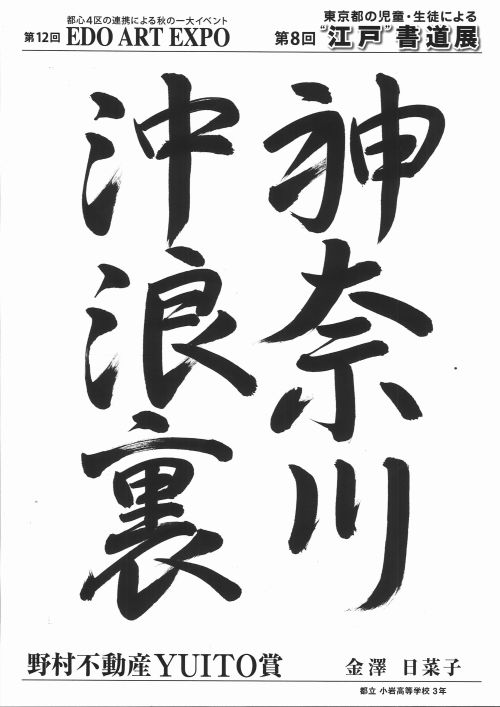 都心4区の連携による秋の一大イベント
第12回 EDO ART EXPO
東京都の児童・生徒による
第8回 "江戸"書道展
神奈川
沖浪裏
野村不動産YUITO賞
金澤 日菜子
都立 小岩高等学校 3年